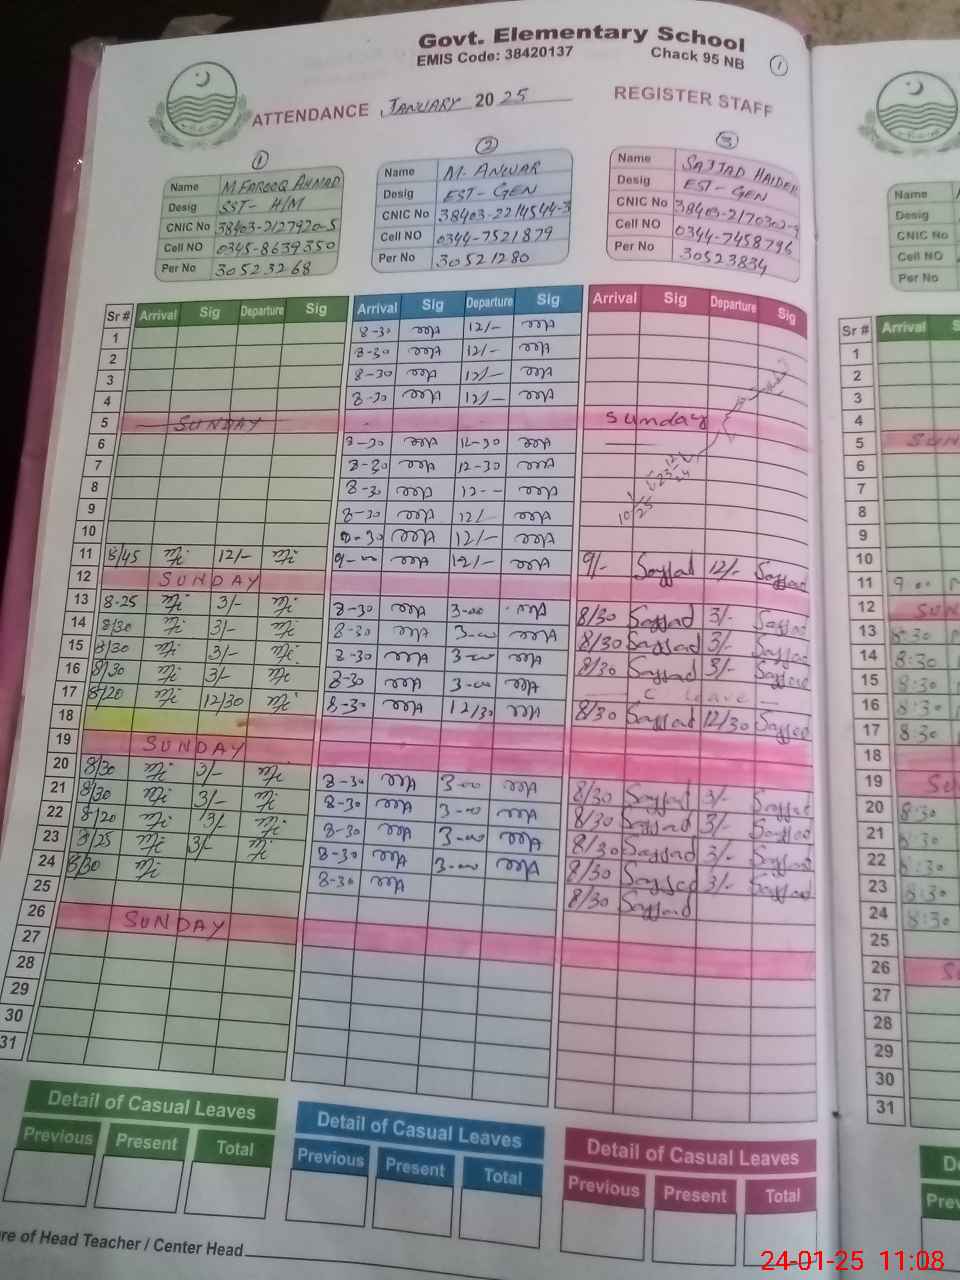 Govt. Elementary School
EMIS Code: 38420137 Chack 95 NB ①
ATTENDANCE JANUARY 2025 REGISTER STAFF
① ② ③
Name M. FAROOQ AHMAD
Desig SST - H/M
CNIC No 38403-2127920-5
Cell NO 0345-8639350
Per No 30523268
Name M. ANWAR
Desig EST - GEN
CNIC No 38403-2214544-3
Cell NO 0344-7521879
Per No 30521280
Name SAJJAD HAIDER
Desig EST - GEN
CNIC No 38403-2170302-9
Cell NO 0344-7458796
Per No 30523834
Name
Desig
CNIC No
Cell NO
Per No
Sr # Arrival Sig Departure Sig Arrival Sig Departure Sig Arrival Sig Departure Sig Sr # Arrival
1 8-30 12/- 1
2 8-30 12/- 2
3 8-30 12/- 3
4 8-30 12/- 4
5 SUNDAY Sunday 5
6 8-30 12-30 6
7 8-30 12-30 7
8 8-30 12-- 8
9 8-30 12/- 9
10 8-30 12/- 10
11 8/45 12/- 9-00 12/- 9/- Sajjad 12/- Sajjad 11 9 00
12 SUNDAY 12
13 8-25 3/- 8-30 3-00 8/30 Sajjad 3/- Sajjad 13 8:30
14 8/30 3/- 8-30 3-00 8/30 Sajjad 3/- Sajjad 14 8:30
15 8/30 3/- 8-30 3-00 8/30 Sajjad 3/- Sajjad 15 8:30
16 8/30 3/- 8-30 3-00 C leave 16 8:30
17 8/20 12/30 8-30 12/30 8/30 Sajjad 12/30 Sajjad 17 8:30
18 18
19 SUNDAY 19
20 8/30 3/- 8-30 3-00 8/30 Sajjad 3/- Sajjad 20 8:30
21 8/30 3/- 8-30 3-00 8/30 Sajjad 3/- Sajjad 21 8:30
22 8/20 3/- 8-30 3-00 8/30 Sajjad 3/- Sajjad 22 8:30
23 8/25 3/- 8-30 3-00 8/30 Sajjad 3/- Sajjad 23 8:30
24 8/30 8-30 8/30 Sajjad 24 8:30
25 25
26 SUNDAY 26
27 27
28 28
29 29
30 30
31 31
Detail of Casual Leaves Detail of Casual Leaves Detail of Casual Leaves
Previous Present Total Previous Present Total Previous Present Total
re of Head Teacher / Center Head
24-01-25 11:08